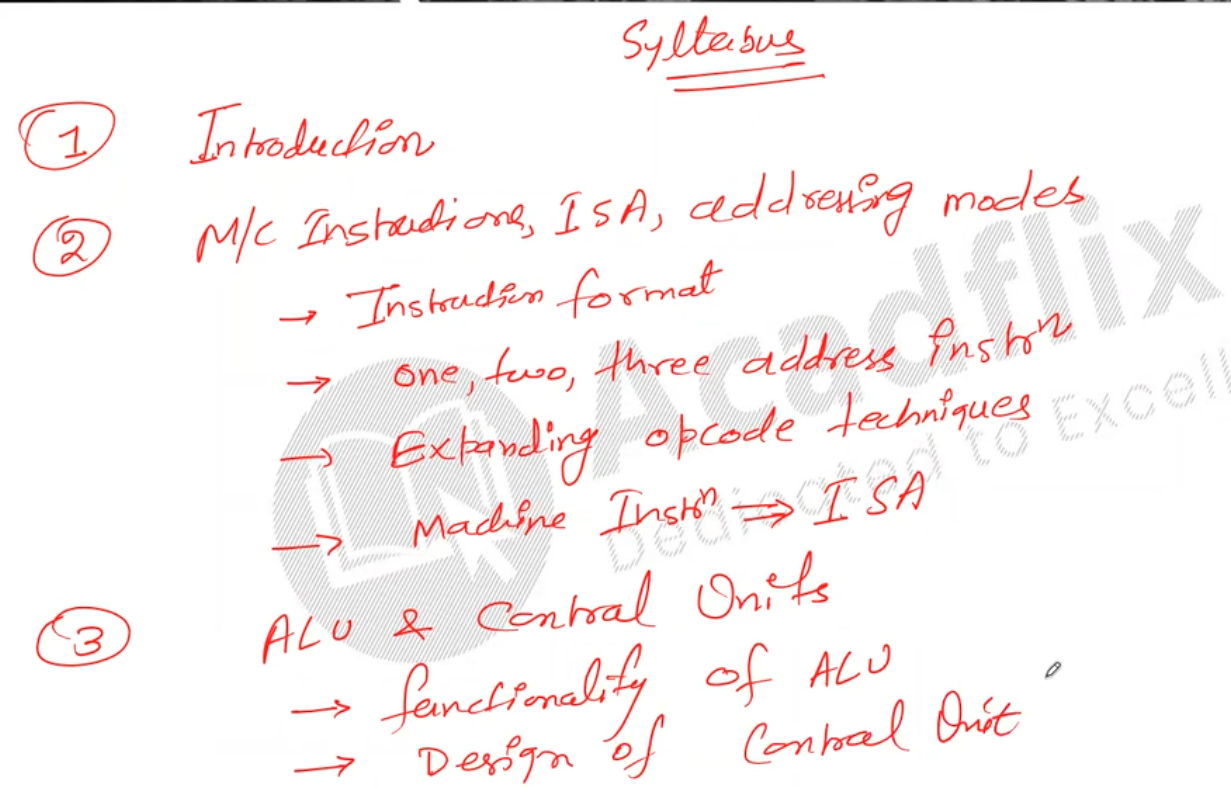 Syllabus
1 Introduction
2 M/C Instructions, ISA, addressing modes
→ Instruction format
→ one, two, three address instrⁿ
→ Expanding opcode techniques
→ Machine Instrⁿ ⇒ ISA
3 ALU & Control Units
→ functionality of ALU
→ Design of Control Unit
Acadflix
Dedicated to Excell